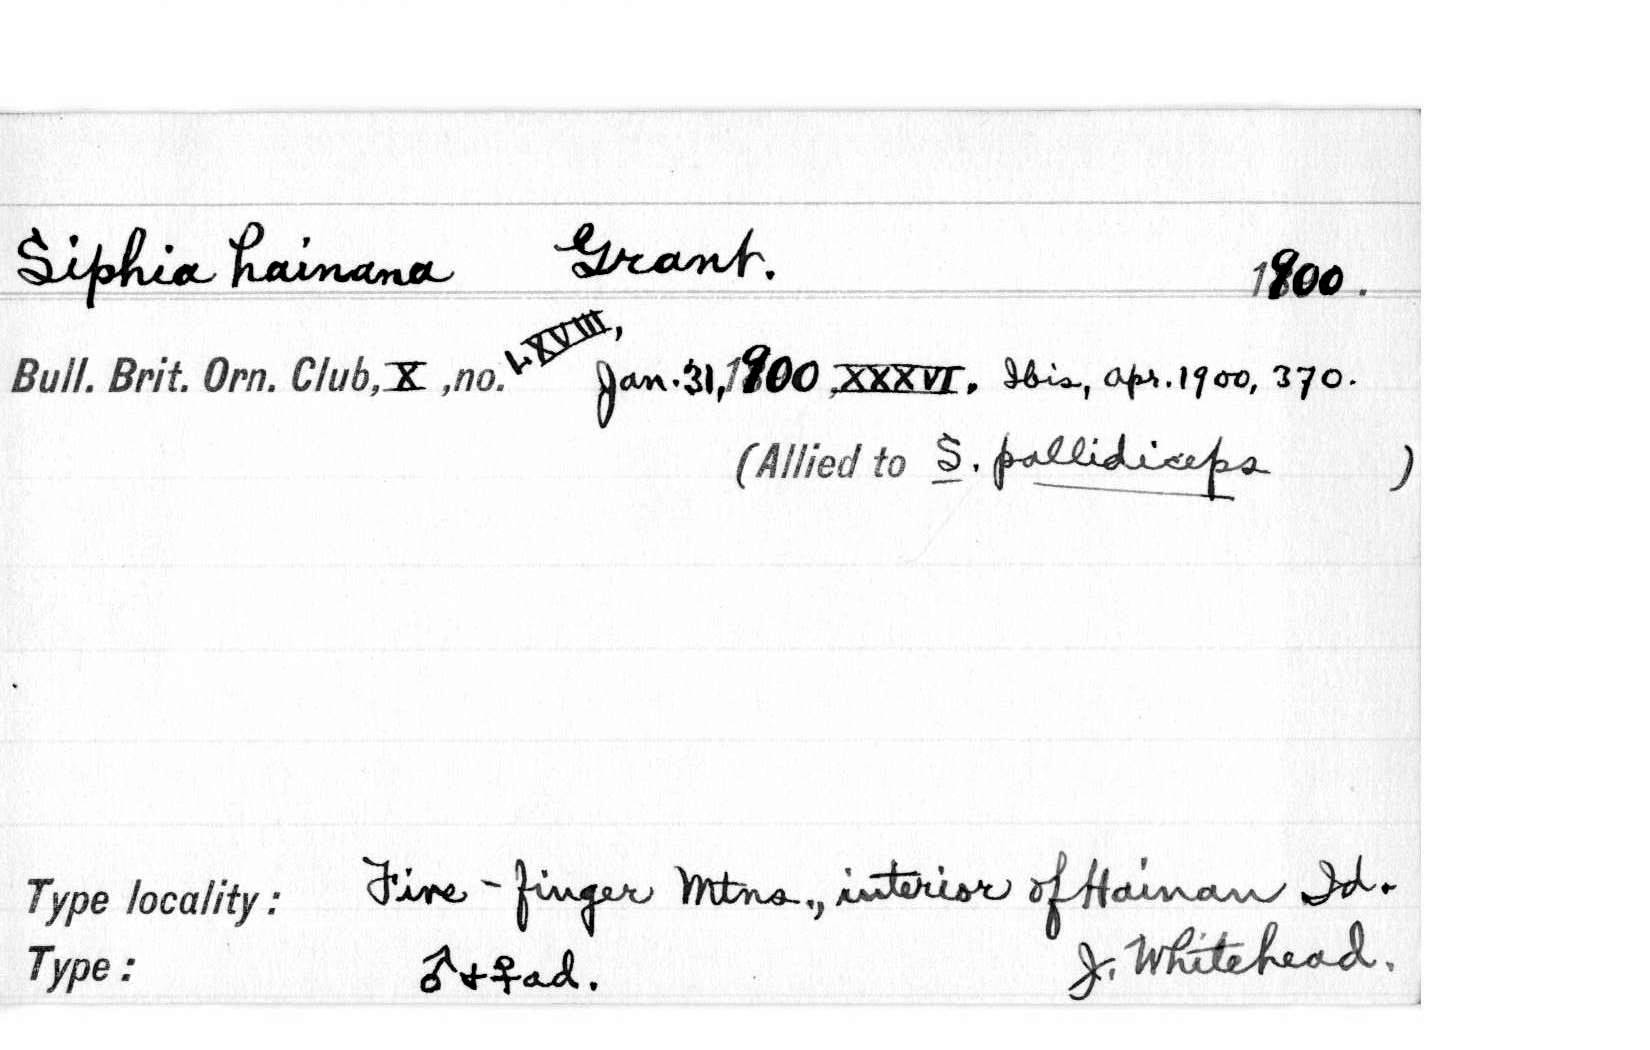 Siphia hainana Grant. 1900.
Bull. Brit. Orn. Club, X, no. LXVIII, Jan. 31, 1900, XXXVI. Ibis, Apr. 1900, 370.
(Allied to S. pallidiceps )
Type locality: Five-finger Mtns., interior of Hainan Id.
Type: ♂+♀ad. J. Whitehead.